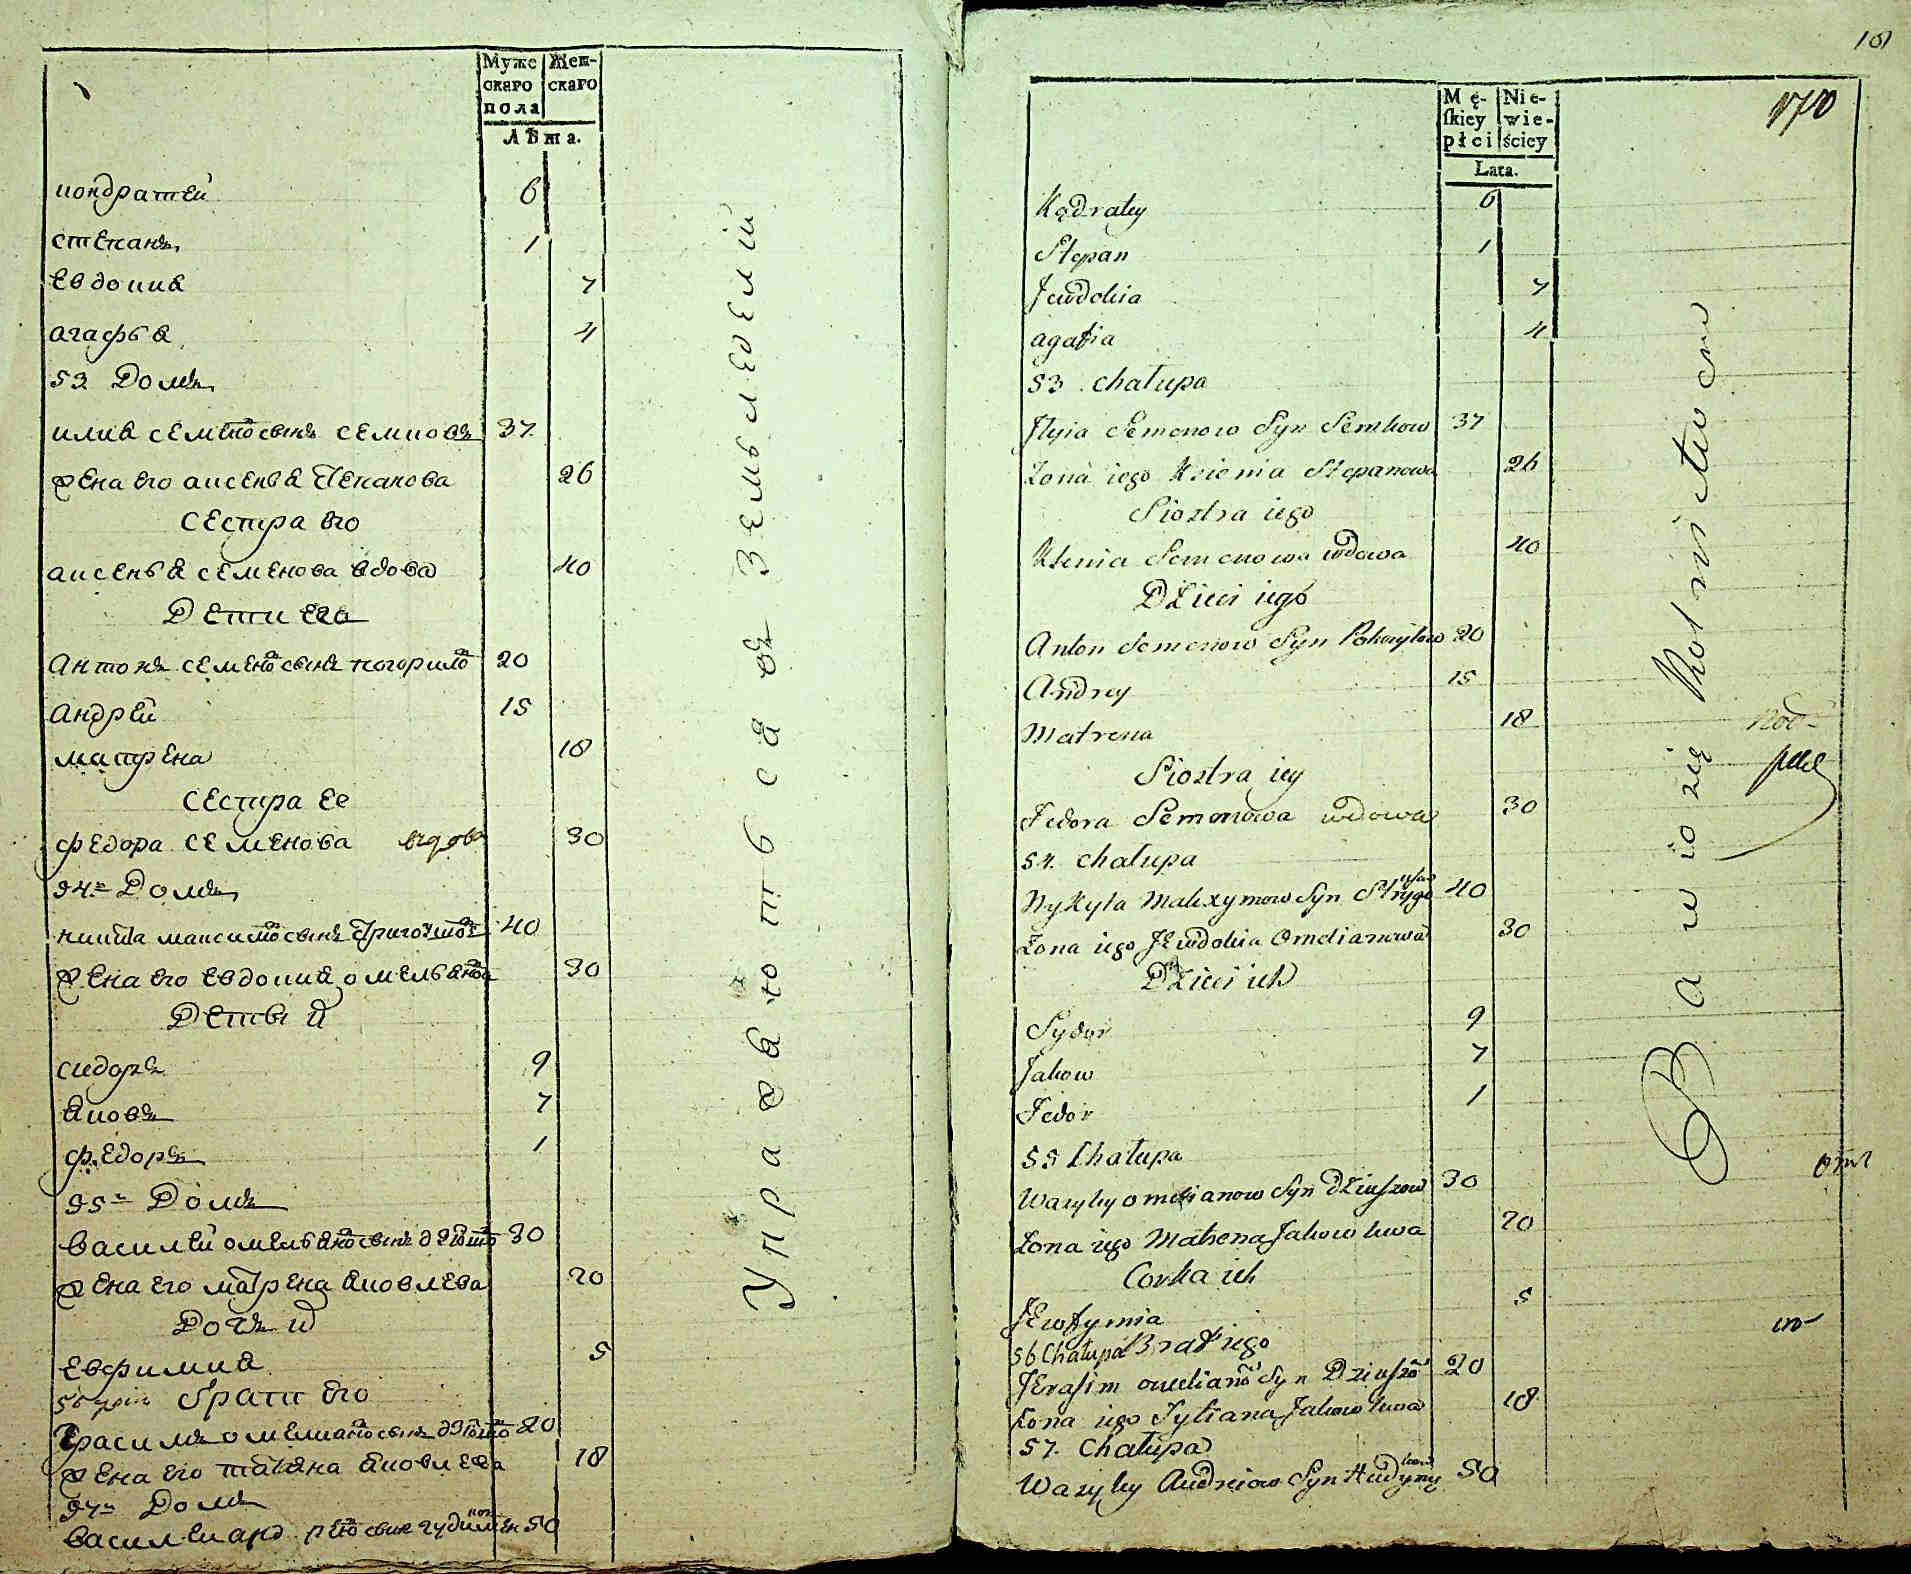 Муже
скаго
пола
Жен-
скаго
Лѣта.
кондратей 6
степанъ 1
евдокия 7
агафья 4
53 Домъ
илия семеновъ сынъ семковъ 37
жена его аксенья степанова 26
сестра его
аксенья семенова вдова 40
Дети ега
антонъ семеновъ сынъ 20
андрей 15
матрена 18
сестра ее
федора семенова вдова 30
54й Домъ
никита максимовъ сынъ 40
жена его евдокия омельянова 30
Деты и
сидоръ 9
яковъ 7
федоръ 1
55й Домъ
василей омельяновъ сынъ 30
жена его матрена яковлева 20
Дочъ и
евфимия 5
56 братъ его
герасимъ омелиановъ сынъ 20
жена его татияна яковлева 18
57й Домъ
василей сынъ 50
Управаютьса въ земьледелии
161
170
Mę-
skiey
płci
Nie-
wie-
ściey
Lata.
Kądratey 6
Stepan 1
Jewdokia 7
agafia 4
53. chałupa
Ilyia Semenow Syn Semkow 37
Zona iego Ksienia Stepanowa 26
Siostra iego
Ksenia Semenowa wdowa 40
Dzieci iego
Anton Semenow Syn 20
Andrey 15
Matrena 18
Siostra iey
Fedora Semonowa wdowa 30
54. chałupa
Nykyta Maksymow Syn 40
Zona iego Jewdokia Omelianowa 30
Dzieci ich
Sydor 9
Jakow 7
Fedor 1
55 Chałupa
Wasyley omelianow Syn Dziuszow 30
Zona iego Matrena Jakowlewa 20
Corka ich
Jewfymia 5
56 Chałupa Brat iego
Jerasim omelianow Syn Dziuszow 20
Zona iego Tytiana Jakowlewa 18
57. Chałupa
Wasyley Andreiow Syn 50
Bawio się Rolnictwem